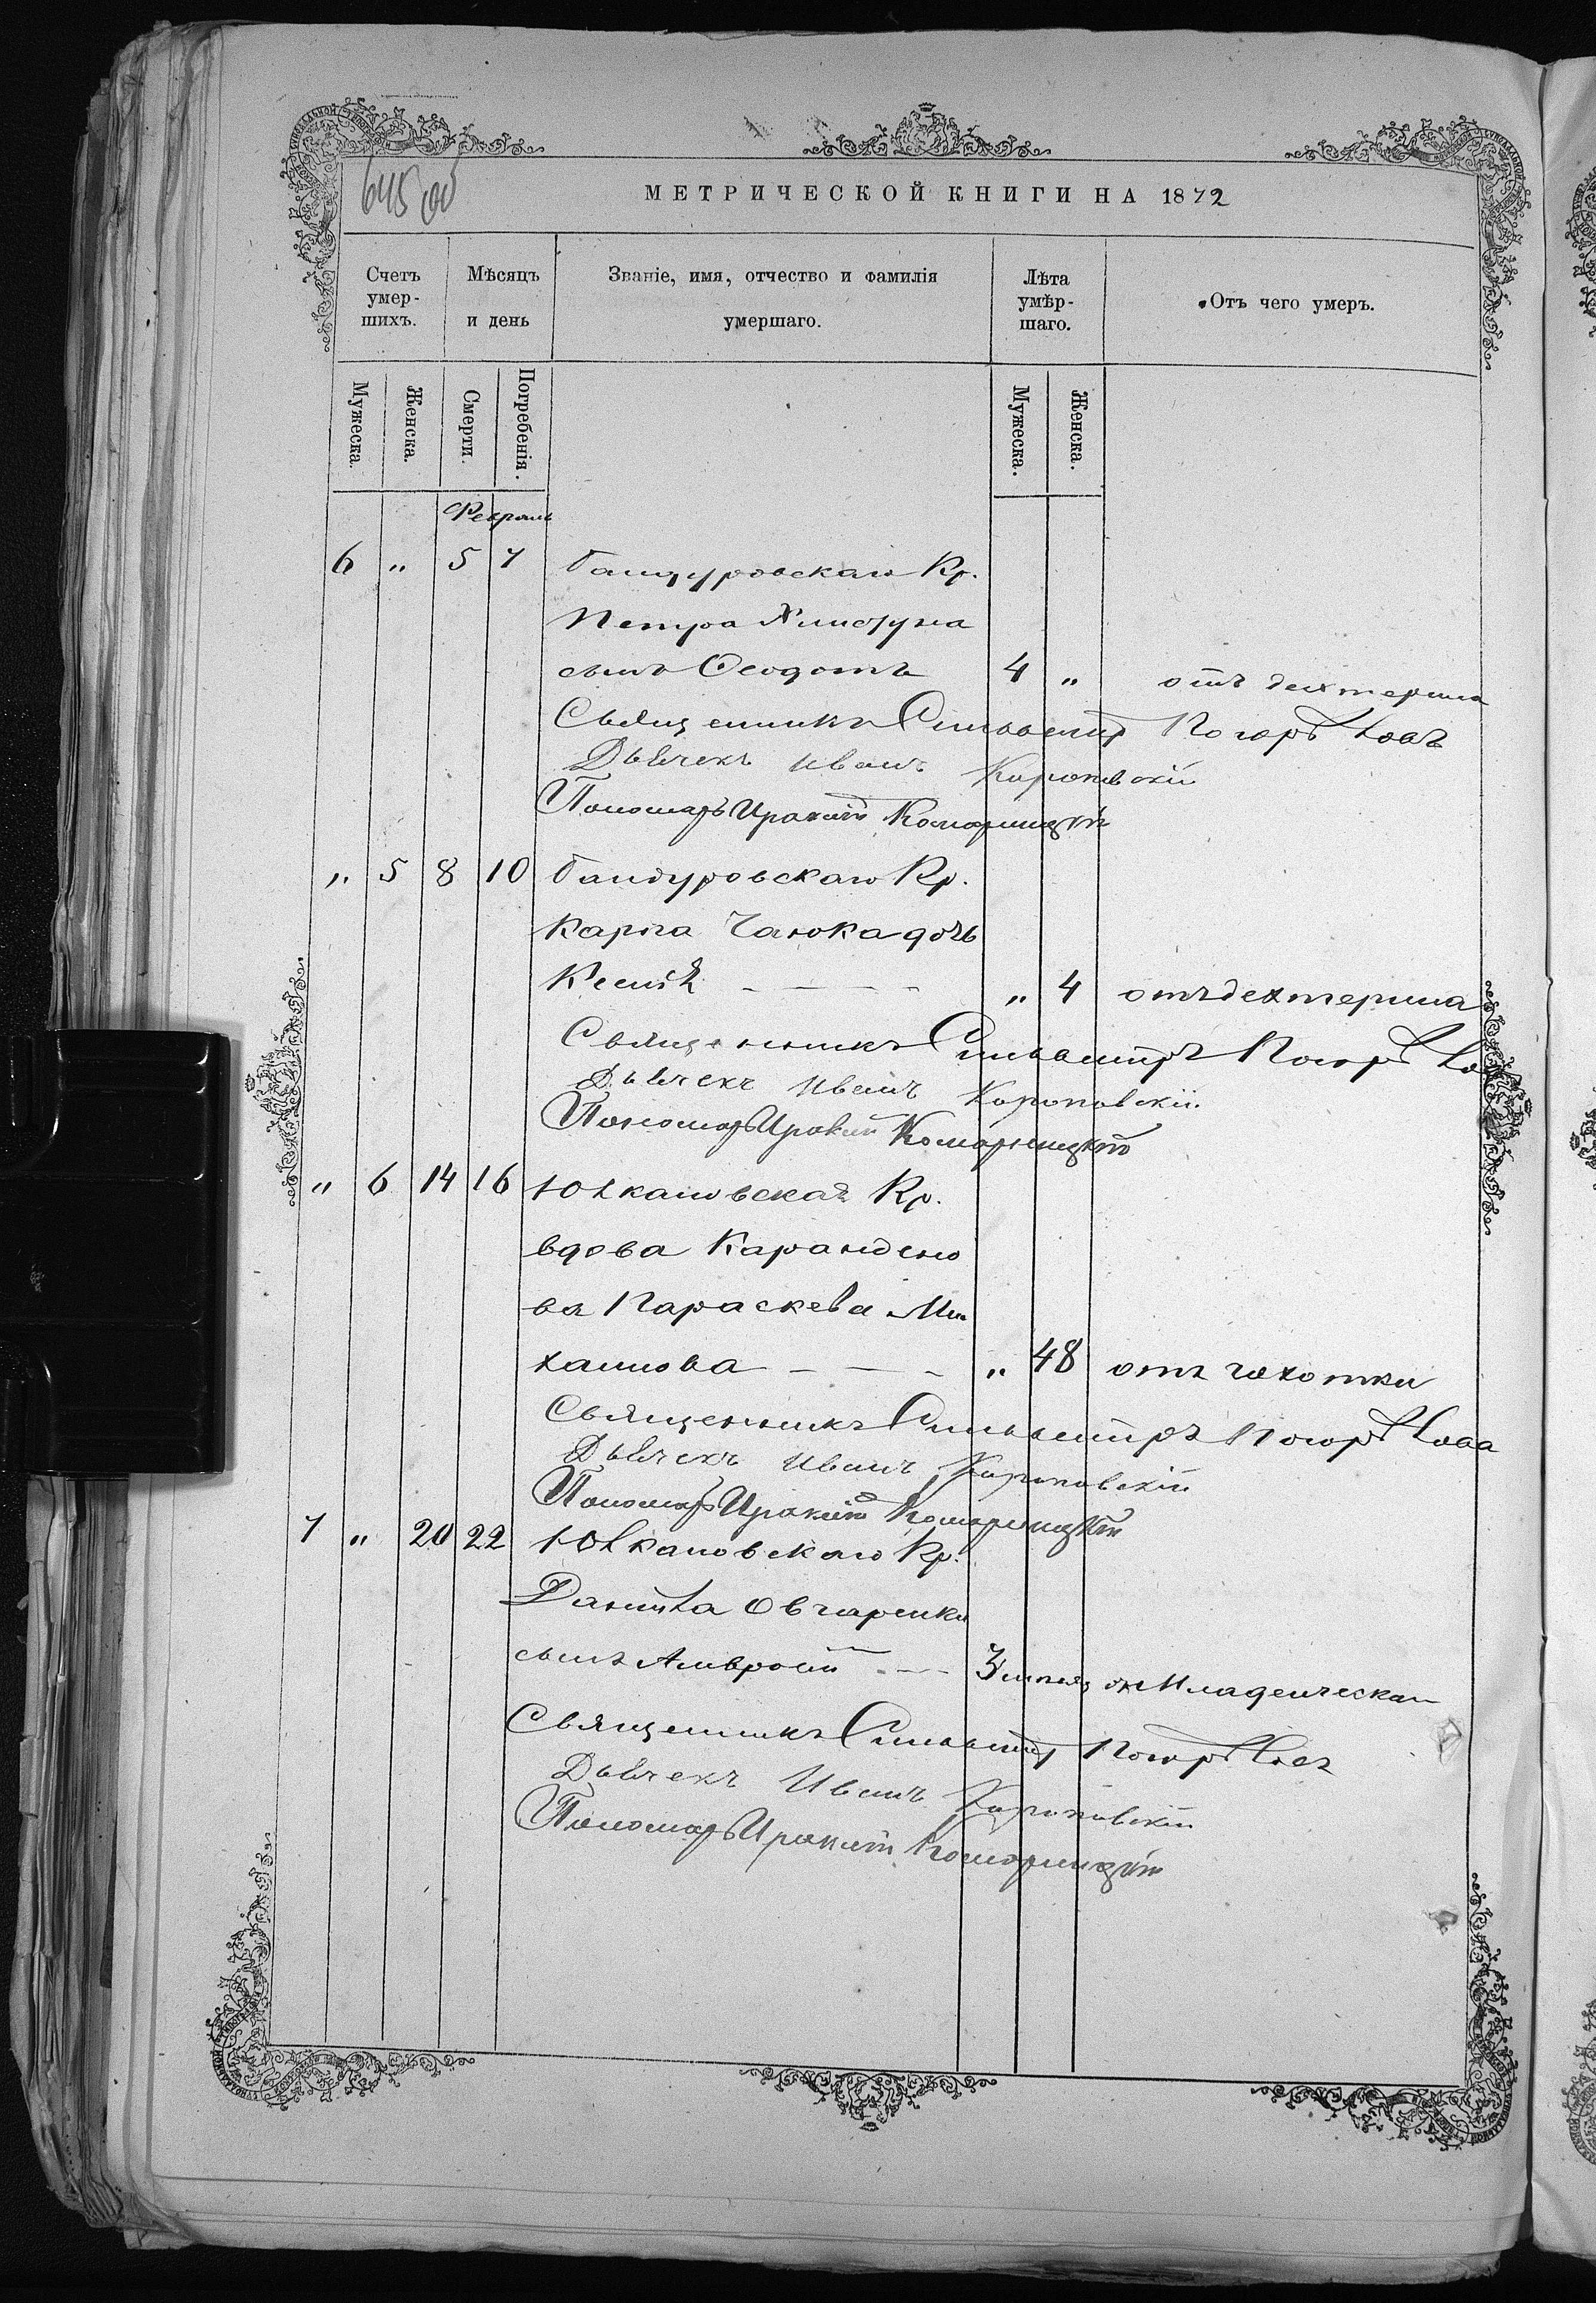 645 об
МЕТРИЧЕСКОЙ КНИГИ НА 1872
Счетъ умер-шихъ.
Мѣсяцъ и день
Званіе, имя, отчество и фамилія умершаго.
Лѣта умѣр-шаго.
Отъ чего умеръ.
Мужеска.
Женска.
Смерти.
Погребенія.
Мужеска.
Женска.
Февраль
6 " 5 7 Бандуровскаго Кр.
Петра
сынъ Ѳеодотъ 4 " отъ дехтерита
Священникъ Сильвестр Погорѣлов
Дьячекъ Иванъ Кироповскій
Пономарь Ираклій Комарницкій
" 5 8 10 Бандуровскаго Кр.
Карпа Чаюка дочь
Ксенія " 4 отъ дехтерита
Священникъ Сильвестръ Погорѣлов
Дьячекъ Иванъ Кироповскій
Пономарь Ираклій Комарницкій
" 6 14 16 Юзкановская Кр.
вдова Карандено
ва Параскева Ми
хаилова " 48 отъ чахотки
Священникъ Сильвестръ Погорѣлов
Дьячекъ Иванъ Кироповскій
Пономарь Ираклій Комарницкій
7 " 20 22 Юзкановскаго Кр.
Даніила Овчаренка
сынъ Амвросій 3 от Младенческой
Священникъ Сильвестр Погорѣлов
Дьячекъ Иванъ Кироповскій
Пономарь Ираклій Комарницкій